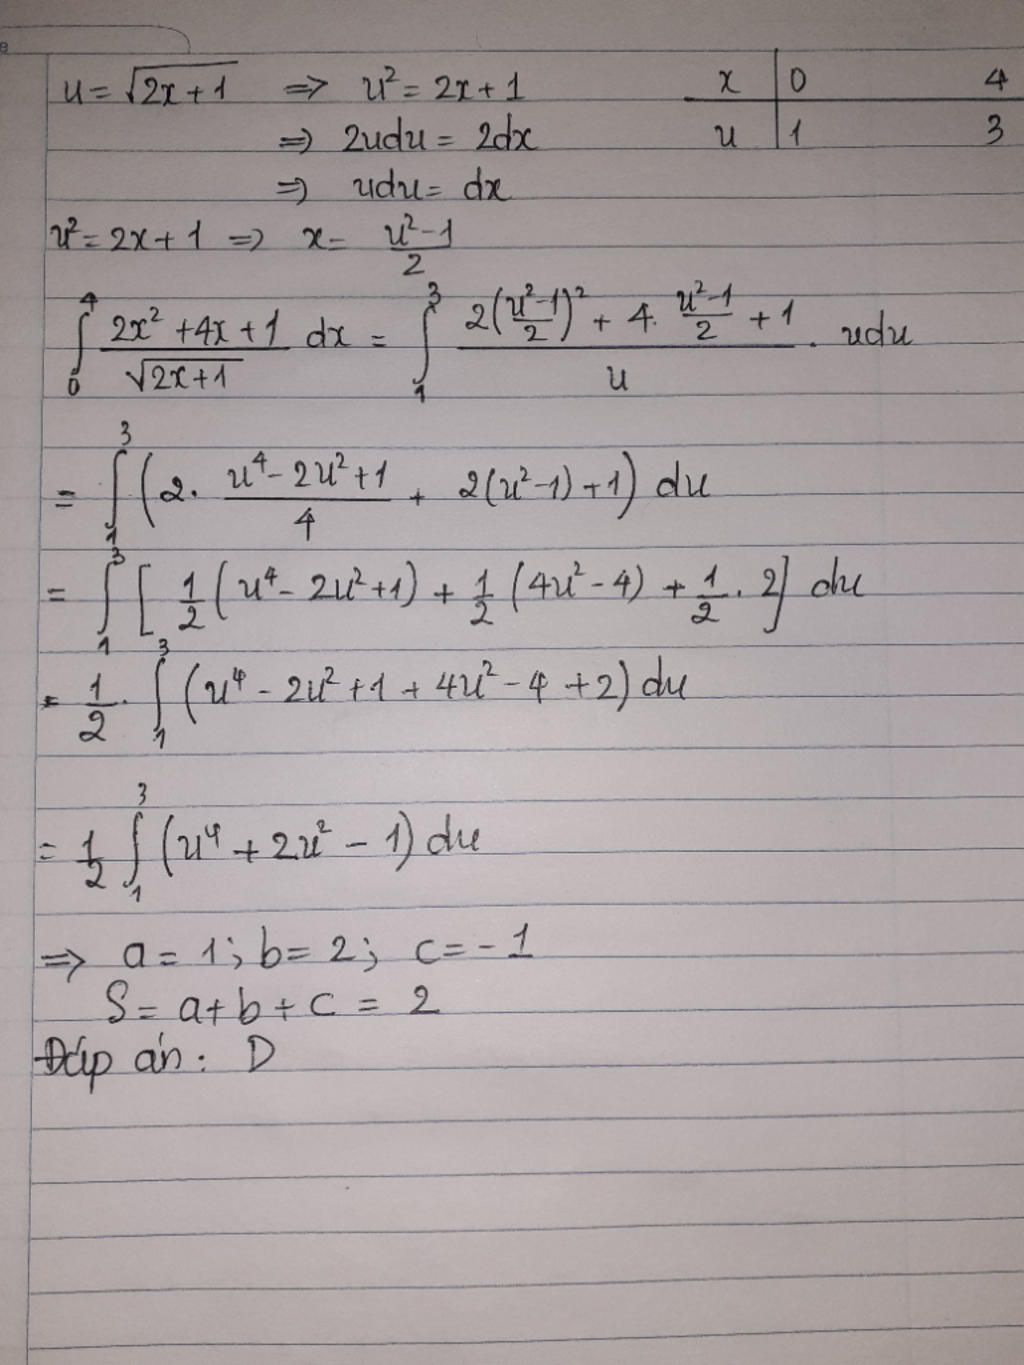 u = √(2x+1) ⇒ u² = 2x + 1
x | 0 4
⇒ 2udu = 2dx
u | 1 3
⇒ udu = dx
u² = 2x + 1 ⇒ x = (u² - 1)/2
∫₀⁴ (2x² + 4x + 1)/√(2x+1) dx = ∫₁³ (2((u²-1)/2)² + 4. (u²-1)/2 + 1)/u . udu
= ∫₁³ (2. (u⁴ - 2u² + 1)/4 + 2(u² - 1) + 1) du
= ∫₁³ [1/2 (u⁴ - 2u² + 1) + 1/2 (4u² - 4) + 1/2 . 2] du
= 1/2 . ∫₁³ (u⁴ - 2u² + 1 + 4u² - 4 + 2) du
= 1/2 ∫₁³ (u⁴ + 2u² - 1) du
⇒ a = 1; b = 2; c = -1
S = a + b + c = 2
Đáp án: D